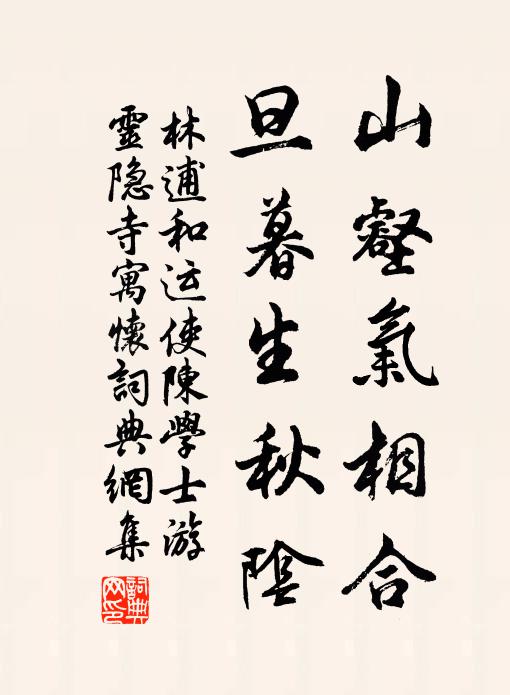 山壑氣相合
旦暮生秋陰
林逋和运使陳學士游
靈隐寺寓懷詞典網集
詞典網印